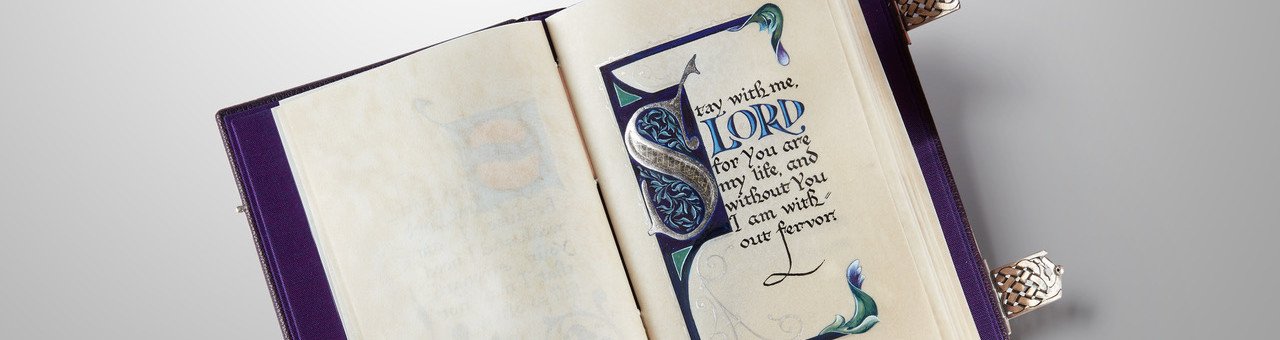 Stay with me,
LORD
for You are
my life, and
without You
I am with=
out fervor.